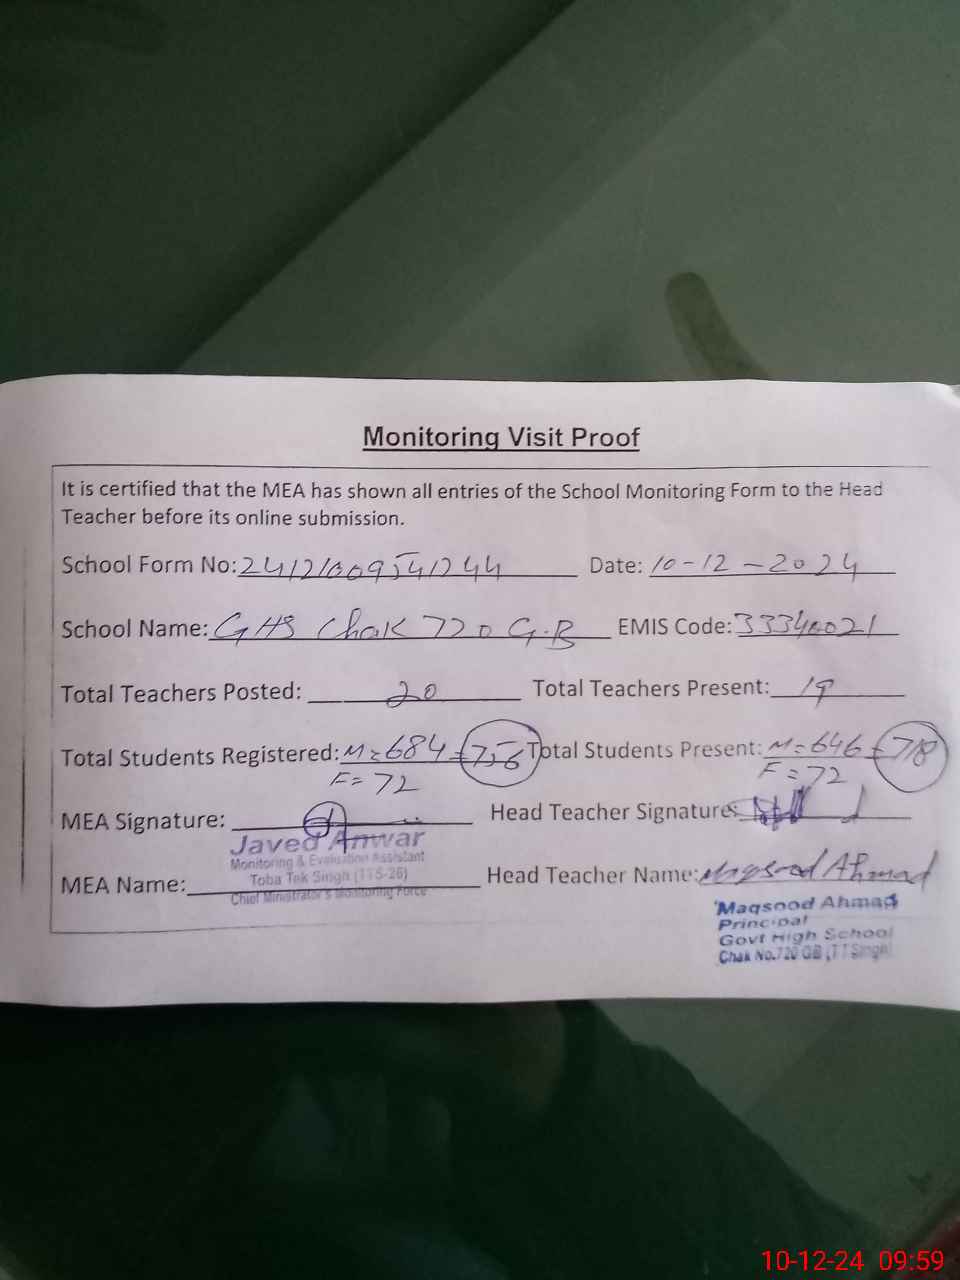 Monitoring Visit Proof
It is certified that the MEA has shown all entries of the School Monitoring Form to the Head
Teacher before its online submission.
School Form No: 24121009541244 Date: 10-12-2024
School Name: GHS Chak 720 G.B EMIS Code: 33340021
Total Teachers Posted: 20 Total Teachers Present: 19
Total Students Registered: M=684 =756 Total Students Present: M=646 =718
F=72 F=72
MEA Signature: Head Teacher Signature:
Javed Anwar
Monitoring & Evaluation Assistant
Toba Tek Singh (TTS-26)
MEA Name: Head Teacher Name: Maqsood Ahmad
Chief Ministrator's Monitoring Force
Maqsood Ahmad
Principal
Govt High School
Chak No.720 GB (T T Singh)
10-12-24 09:59